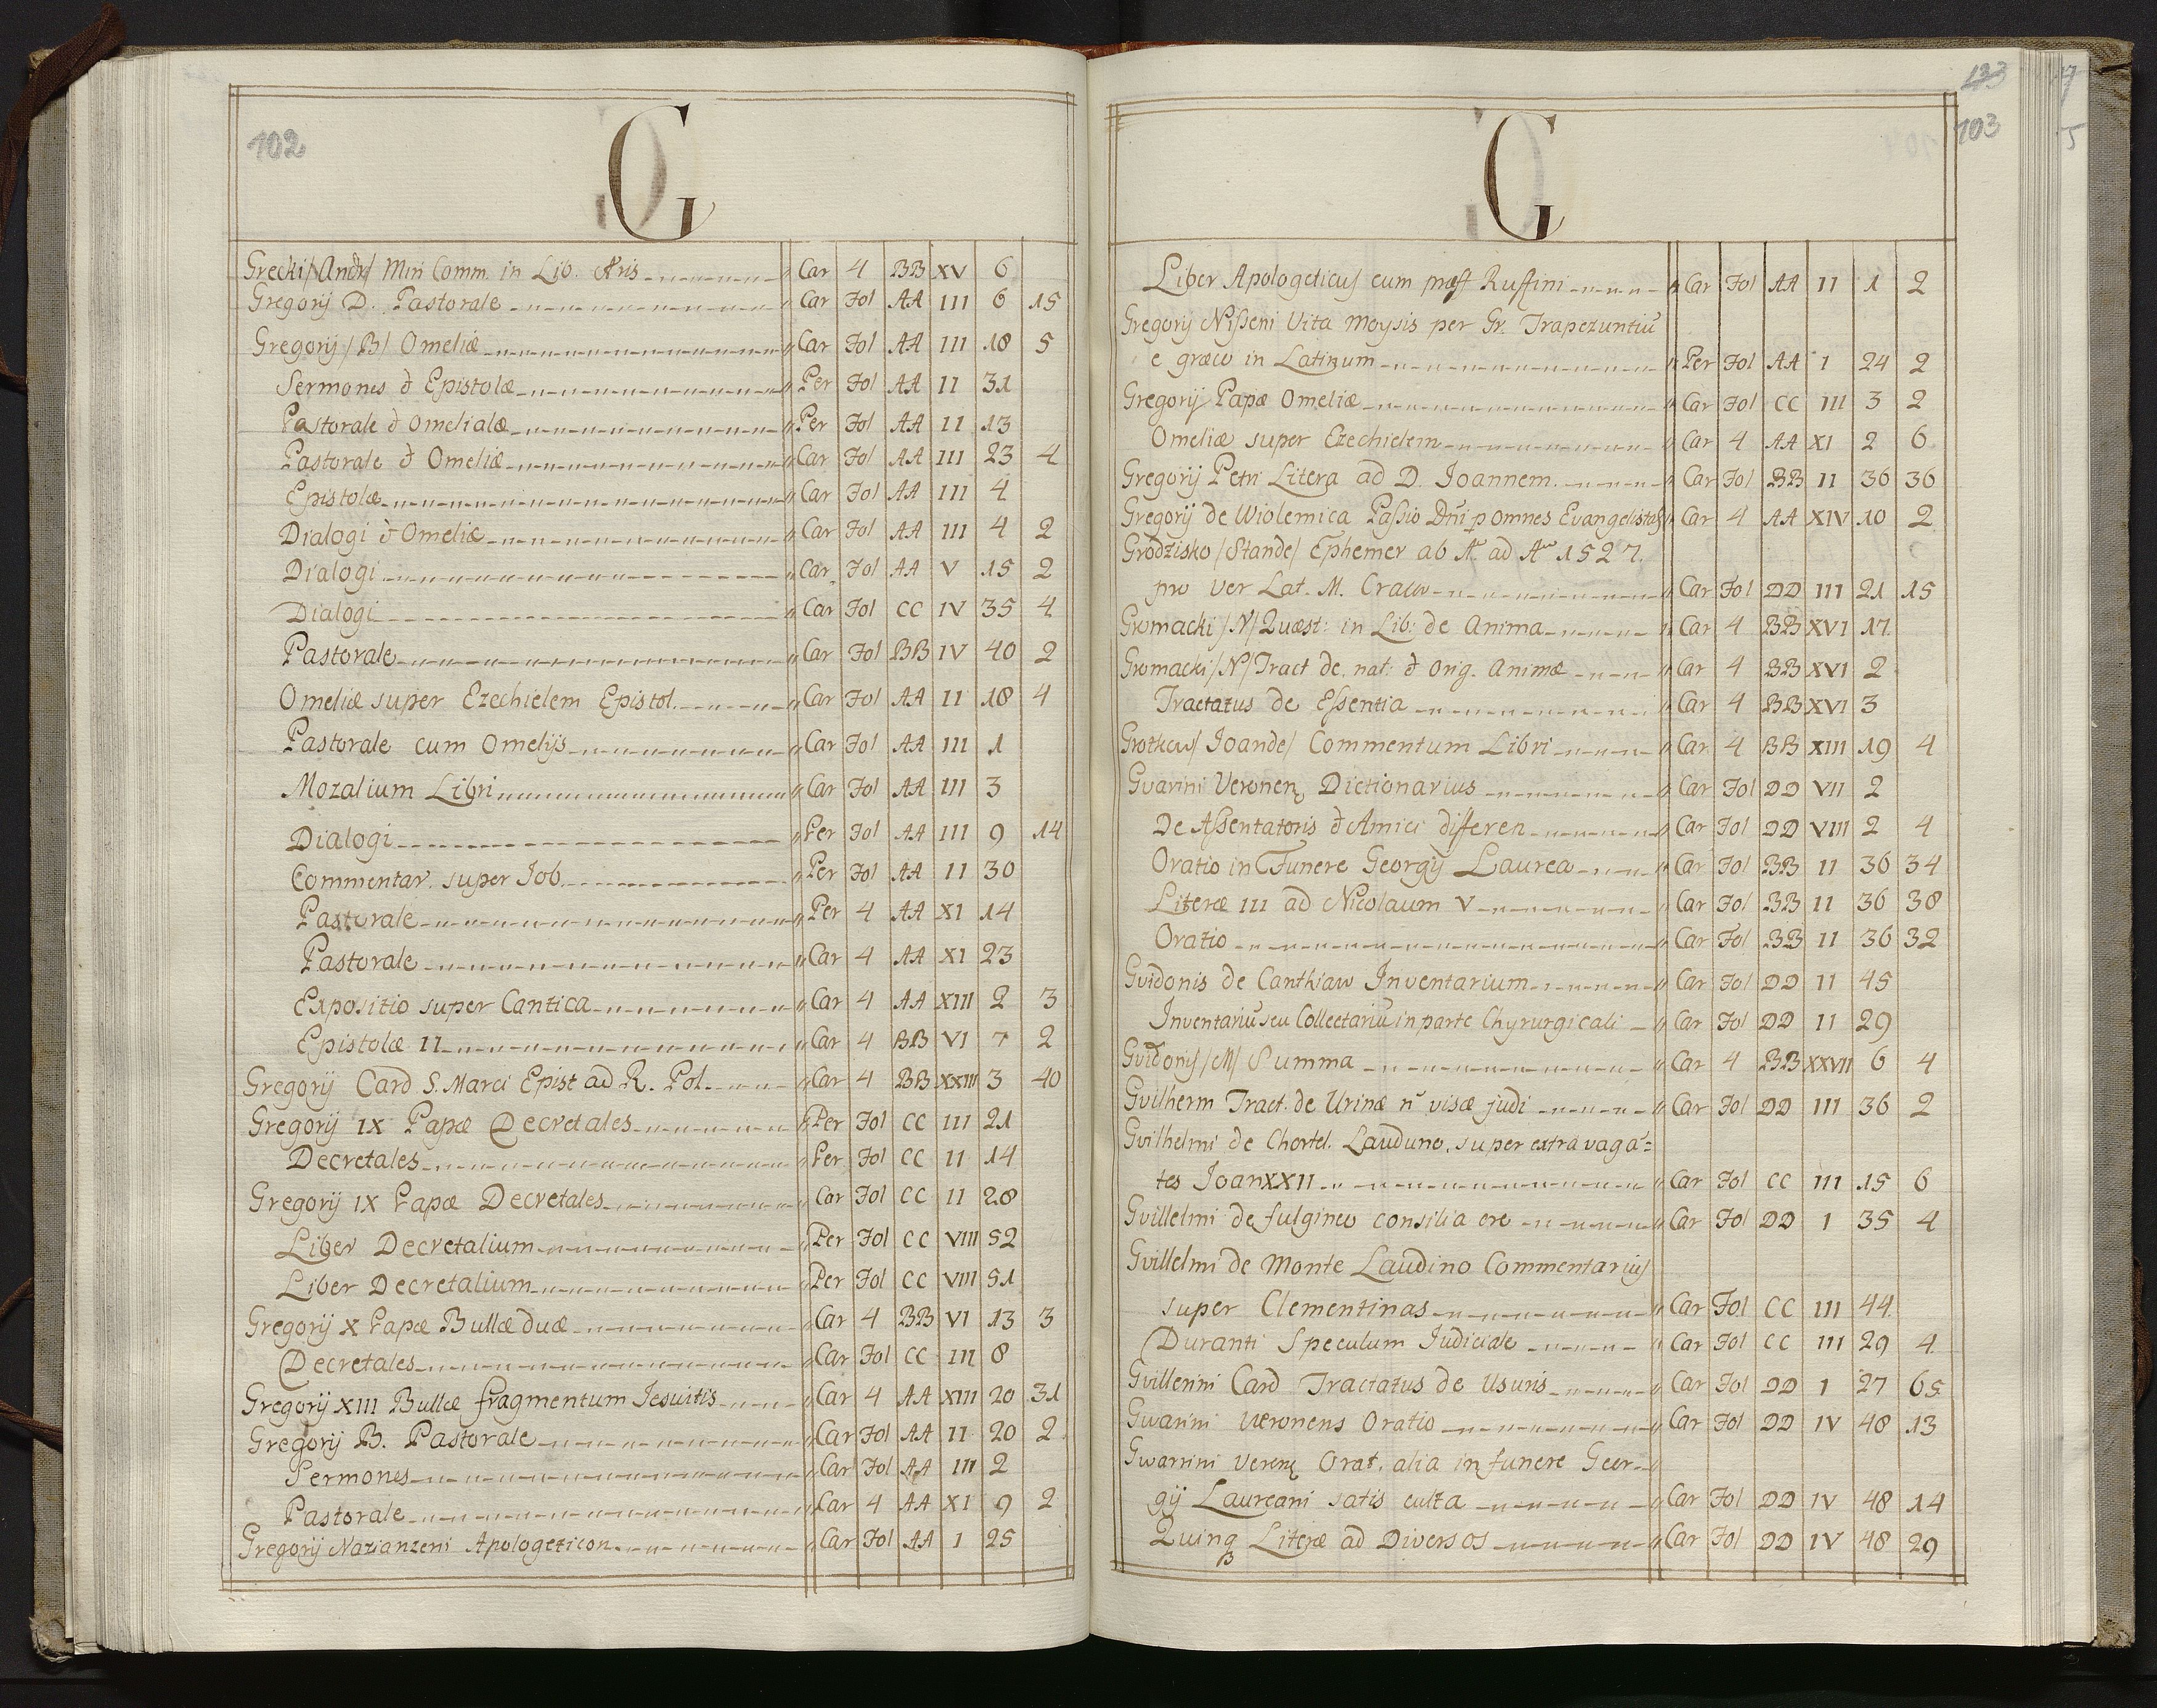 102
G
Grecki/Andr/ Min Comm. in Lib. Aris " Car 4 BB XV 6
Gregorij D. Pastorale " Car Fol AA III 6 15
Gregorij /B/ Omeliæ " Car Fol AA III 18 5
Sermones & Epistolæ " Per Fol AA II 31
Pastorale & Omelialæ " Per Fol AA II 13
Pastorale & Omeliæ " Car Fol AA III 23 4
Epistolæ " Car Fol AA III 4
Dialogi & Omeliæ " Car Fol AA III 4 2
Dialogi " Car Fol AA V 15 2
Dialogi " Car Fol CC IV 35 4
Pastorale " Car Fol BB IV 40 2
Omeliæ super Ezechielem Epistol. " Car Fol AA II 18 4
Pastorale cum Omelijs " Car Fol AA III 1
Moralium Libri " Car Fol AA III 3
Dialogi " Per Fol AA III 9 14
Commentar. super Job " Per Fol AA II 30
Pastorale " Per 4 AA XI 14
Pastorale " Car 4 AA XI 23
Expositio super Cantica " Car 4 AA XIII 2 3
Epistolæ II " Car 4 BB VI 7 2
Gregorij Card S. Marci Epist ad R. Pol. " Car 4 BB XXIII 3 40
Gregorij IX Papæ Decretales " Per Fol CC III 21
Decretales " Per Fol CC II 14
Gregorij IX Papæ Decretales " Car Fol CC II 28
Liber Decretalium " Per Fol CC VIII 52
Liber Decretalium " Per Fol CC VIII 51
Gregorij X Papæ Bullæ duæ " Car 4 BB VI 13 3
Decretales " Car Fol CC III 8
Gregorij XIII Bullæ fragmentum Jesuitis " Car 4 AA XIII 20 31
Gregorij B. Pastorale " Car Fol AA II 20 2
Sermones " Car Fol AA III 2
Pastorale " Car 4 AA XI 9 2
Gregorij Nazianzeni Apologeticon " Car Fol AA I 25
123
103
G
Liber Apologeticus cum præf Ruffini " Car Fol AA II 1 2
Gregorij Nisseni Vita Moysis per Gr. Trapezuntiū
e græco in Latinum " Per Fol AA I 24 2
Gregorij Papæ Omeliæ " Car Fol CC III 3 2
Omeliæ super Ezechielem " Car 4 AA XI 2 6
Gregorij Petri Litera ad D. Joannem. " Car Fol BB II 36 36
Gregorij de Wiolemica Passio Dni p omnes Evangelistas " Car 4 AA XIV 10 2
Grodzisko /Stande/ Ephemer ab A ad A 1527.
pro ver Lat. M. Cracov " Car Fol DD III 21 15
Gromacki /N/ Quæst: in Lib: de Anima " Car 4 BB XVI 17
Gromacki /N/ Tract de nat: & orig. Animæ " Car 4 BB XVI 2
Tractatus de Essentia " Car 4 BB XVI 3
Grotkow/ Joande/ Commentum Libri " Car 4 BB XIII 19 4
Gvarini Veronen Dictionarius " Car Fol DD VII 2
De Assentatoris & Amici differen " Car Fol DD VIII 2 4
Oratio in Funere Georgij Laurea " Car Fol BB II 36 34
Literæ III ad Nicolaum V " Car Fol BB II 36 38
Oratio " Car Fol BB II 36 32
Gvidonis de Canthiaw Inventarium " Car Fol DD II 45
Inventariū seu Collectariū in parte Chyrurgicali " Car Fol DD II 29
Gvidonis /M/ Summa " Car 4 BB XXVII 6 4
Gvilherm Tract. de Urinæ n visæ judi " Car Fol DD III 36 2
Gvilhelmi de Chortel. Lauduno. super extravagā=
tes Joan XXII " Car Fol CC III 15 6
Gvillelmi de fulgineo consilia " Car Fol DD I 35 4
Gvillelmi de Monte Laudino Commentarius
super Clementinas " Car Fol CC III 44
Duranti Speculum Judiciale " Car Fol CC III 29 4
Gvillerini Card Tractatus de Usuris " Car Fol DD I 27 65
Gwarini Veronens Oratio " Car Fol DD IV 48 13
Gwarrini Veren Orat. alia in funere Geor-
gij Laureani satis culta " Car Fol DD IV 48 14
Quinq Literæ ad Diversos " Car Fol DD IV 48 29